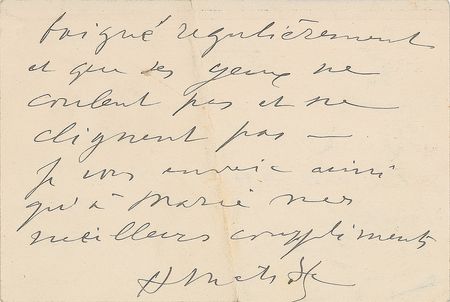 soigné régulièrement
et que ses yeux ne
coulent pas et ne
clignent pas —
Je vous envoie ainsi
qu'à Marie mes
meilleurs compliments
H Matisse